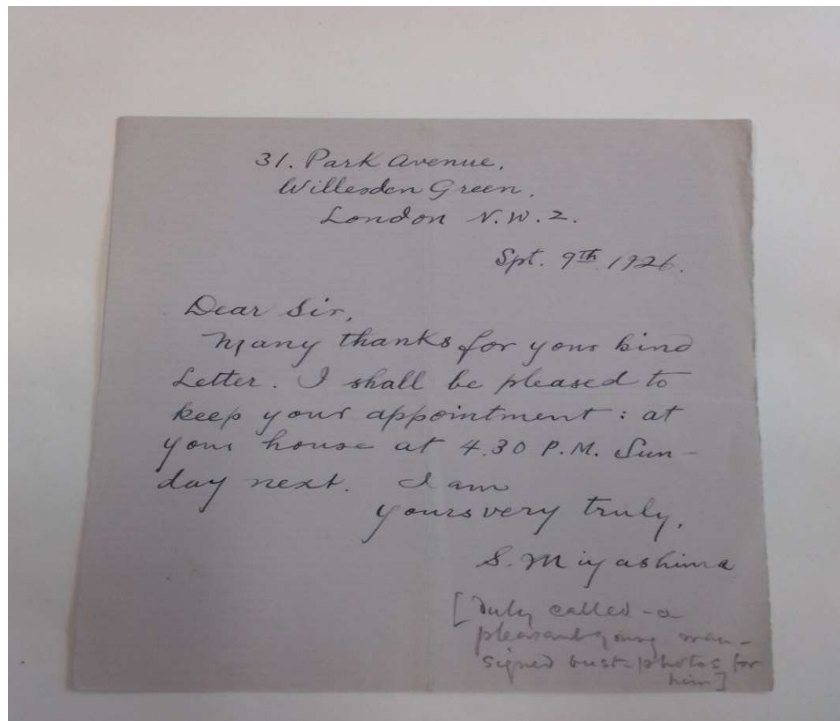 31. Park Avenue,
Willesden Green.
London N.W.2.
Spt. 9th 1926.
Dear Sir,
Many thanks for your kind
Letter. I shall be pleased to
keep your appointment: at
your house at 4.30 P.M. Sun-
day next. I am
yours very truly,
S. Miyashima
[Duly called - a
pleasant young man -
signed bust-photos for
him]